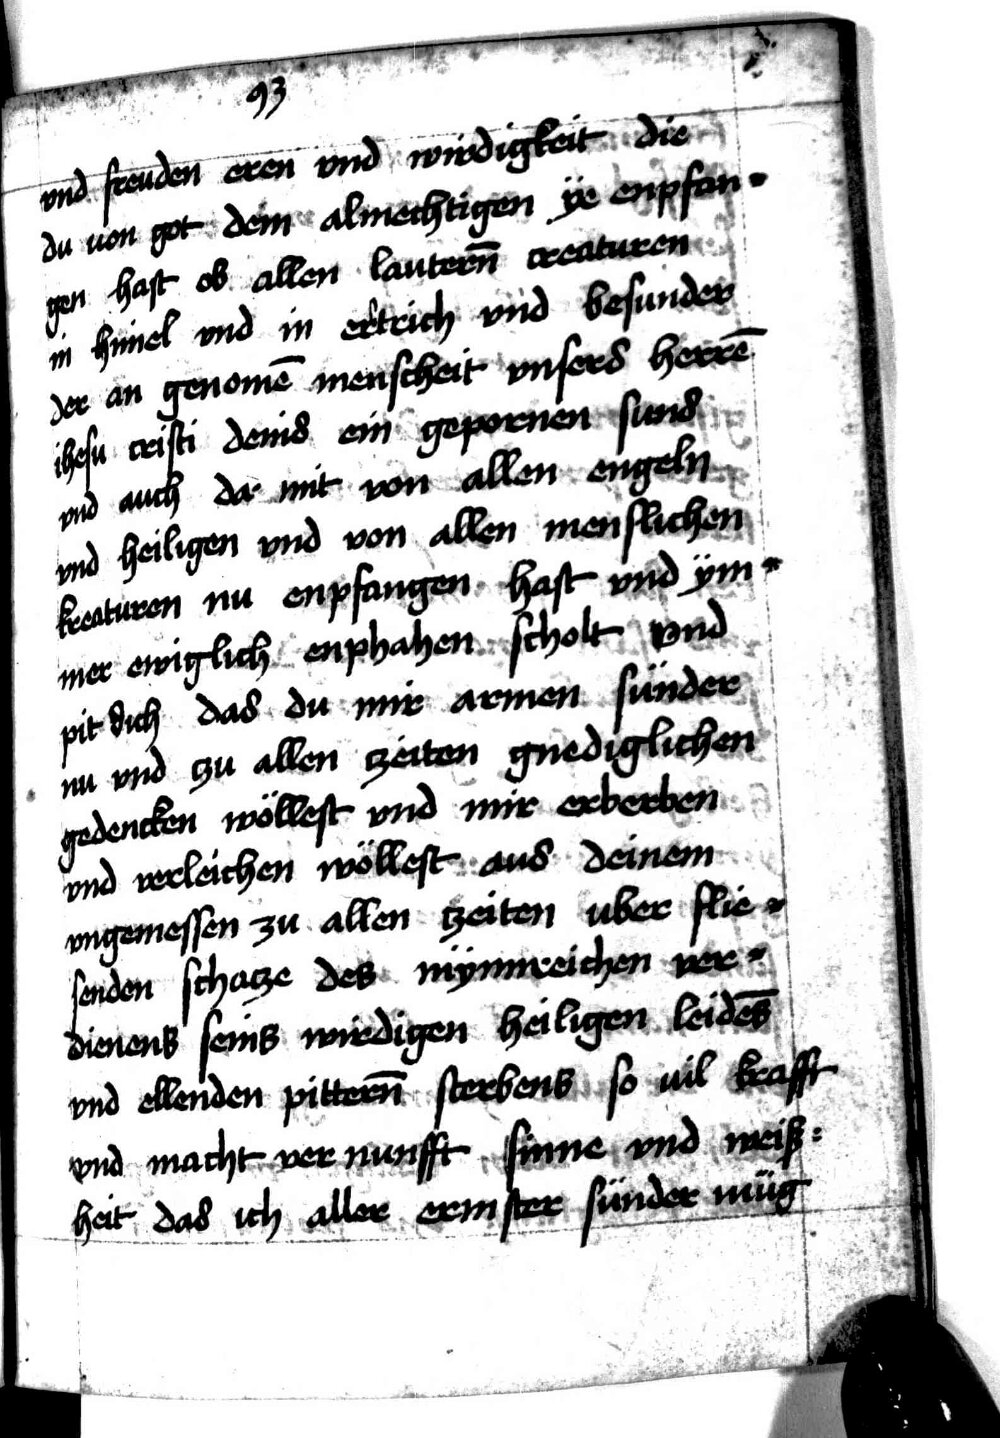 93
vnd freuden eren vnd wirdigkeit die
du uon got dem almechtigen ÿe enpfan-
gen hast ob allen lautern̄ creaturen
in himel vnd in ertrich vnd besunder
der an genomē menscheit vnsers herrē
ihesu cristi deins ein gepornen suns
vnd auch da mit von allen engeln
vnd heiligen vnd von allen menslichen
kreaturen nu enpfangen hast vnd ÿm-
mer ewiglich enphahen scholt vnd
pit dich das du mir armen sünder
nu vnd zu allen tzeiten gnediglichen
gedencken wöllest vnd mir erberben
vnd verleichen wöllest aus deinem
vngemessen zu allen tzeiten uber flie-
senden schatze des mÿnnreichen ver-
dienens seins wirdigen heiligen leidēs
vnd ellenden pittern̄ sterbens so uil krafft
vnd macht ver nunfft sinne vnd weiß-
heit das ich aller ermster sünder müg